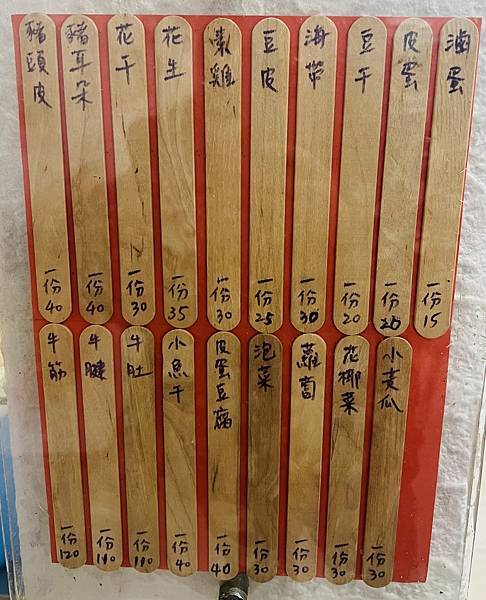 滷蛋 一份15
皮蛋 一份20
豆干 一份20
海带 一份30
豆皮 一份25
素雞 一份30
花生 一份35
花干 一份30
豬耳朵 一份40
豬頭皮 一份40
小麦瓜 一份30
花椰菜 一份30
蘿蔔 一份30
泡菜 一份30
皮蛋豆腐 一份40
小魚干 一份40
牛肚 一份110
牛腱 一份110
牛筋 一份120